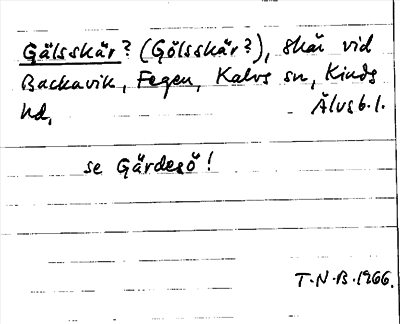 Gälsskär? (Gölsskär?), skär vid
Backavik, Fegen, Kalvs sn, Kinds
hd, Älvsb. l.
se Gärdesö!
T.N.B. 1966.